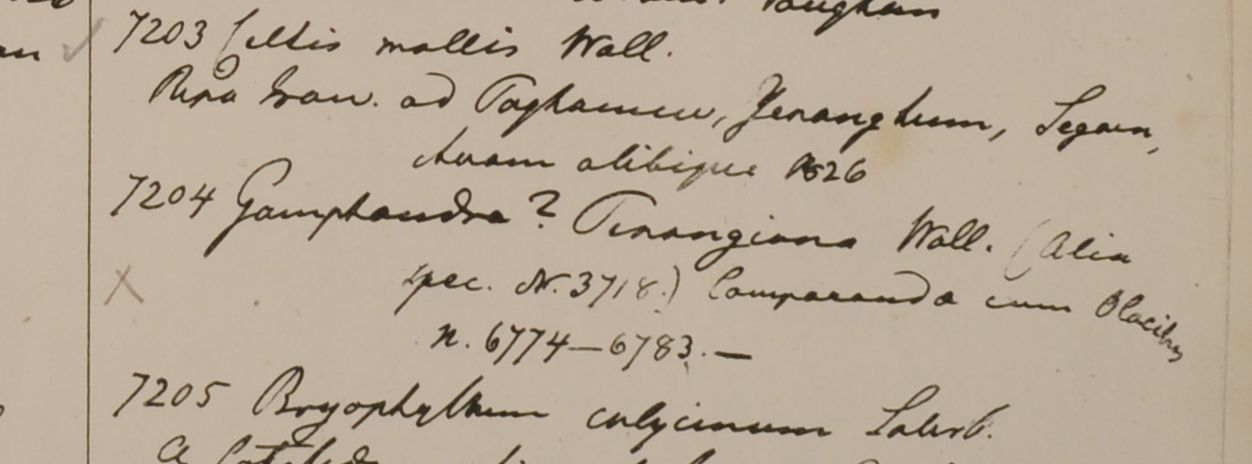 Vaughan
7203 Celtis mollis Wall.
Ripa Irau. ad Paghamew, Yenanghum, Segaen,
Avam alibique 1826
7204 Gomphandra? Penangiana Wall. (Alia
spec. N. 3718.) Comparanda cum Olacibus
n. 6774—6783.—
7205 Bryophyllum calycinum Salisb.
a